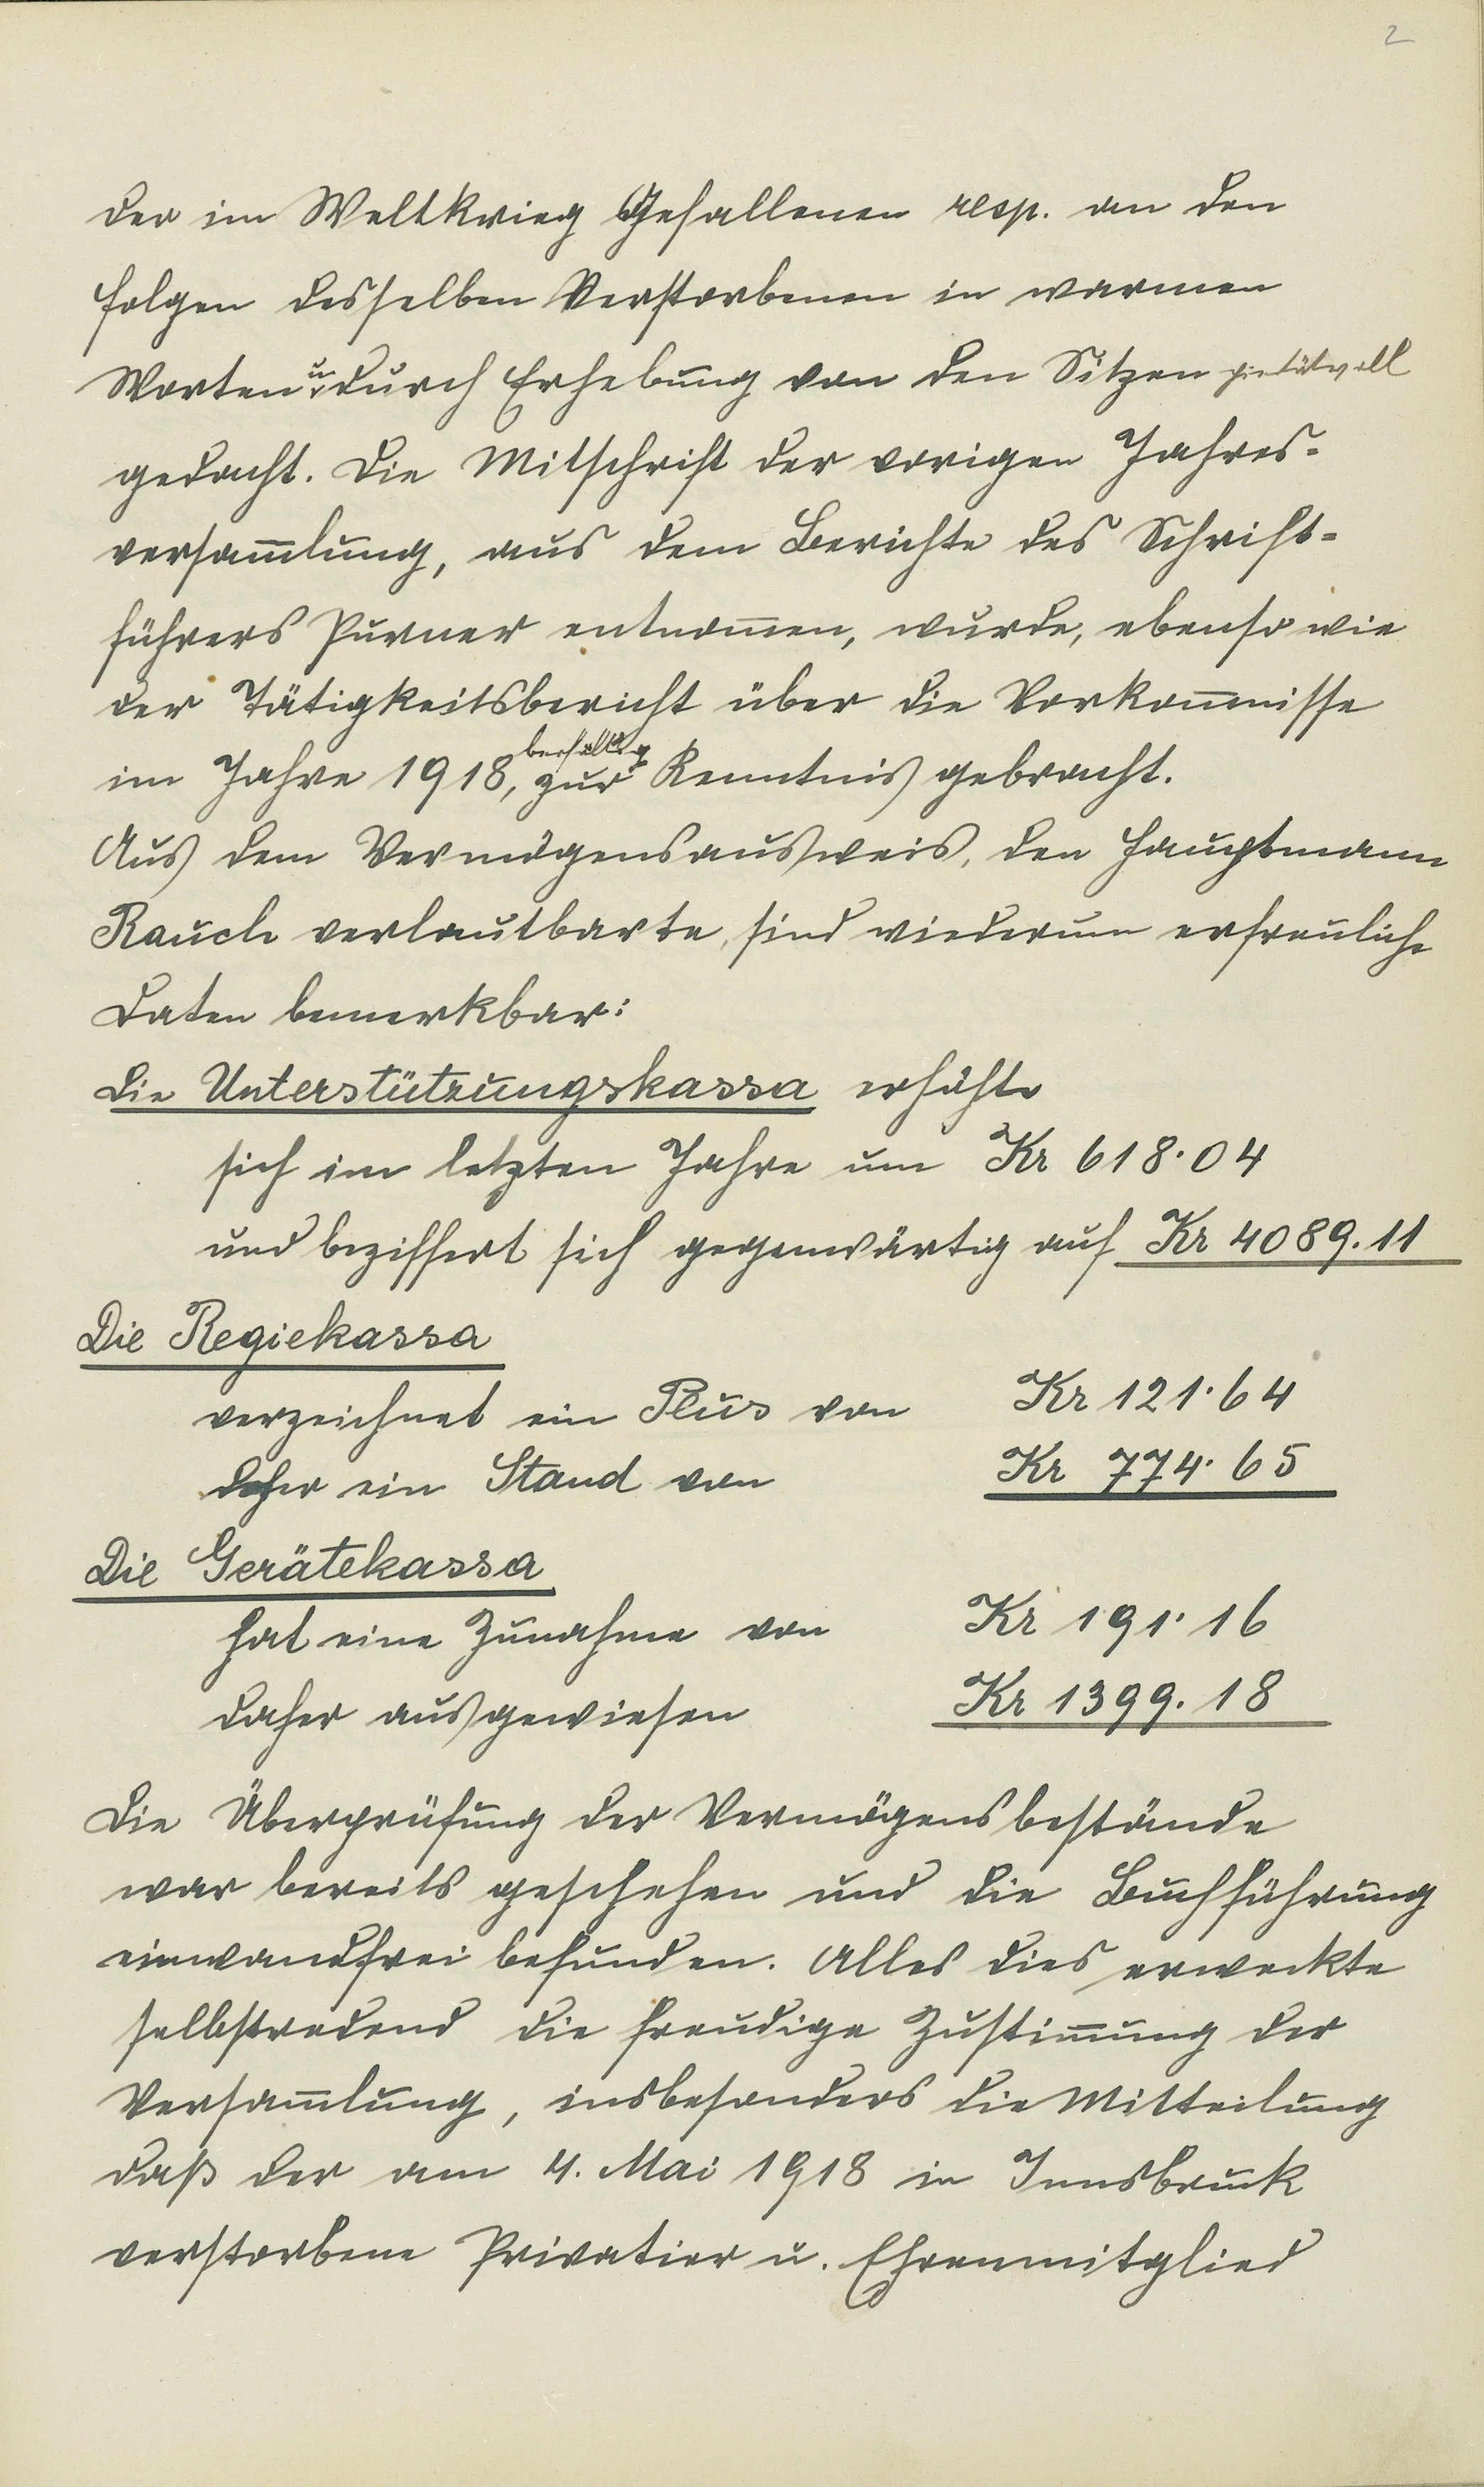 2
der im Weltkrieg Gefallenen resp. an den
Folgen desselben Verstorbenen in warmen
Worten u. durch Erhebung von den Sitzen pietätvoll
gedacht. Die Mitschrift der vorigen Jahres-
versam̅lung, aus dem Berichte des Schrift-
führers Purner entnom̅en, wurde, ebenso wie
der Tätigkeitsbericht über die Vorkom̅nisse
im Jahre 1918, beifällig zur Kenntnis gebracht.
Aus dem Vermögensausweis, den Hauptmann
Rauch verlautbarte, sind wiederum erfreuliche
Daten bemerkbar:
Die Unterstützungskassa erhöhte
sich im letzten Jahre um Kr 618·04
und beziffert sich gegenwärtig auf Kr 4089.11
Die Regiekassa
verzeichnet ein Plus von Kr 121·64
daher ein Stand von Kr 774·65
Die Gerätekassa
hat eine Zunahme von Kr 191·16
daher ausgewiesen Kr 1399.18
Die Überprüfung der Vermögensbestände
war bereits geschehen und die Buchführung
einwandfrei befunden. Alles dies erweckte
selbstredend die freudige Zustim̅ung der
Versam̅lung, insbesonders die Mitteilung
daß der am 4. Mai 1918 in Innsbruck
verstorbene Privatier u. Ehrenmitglied